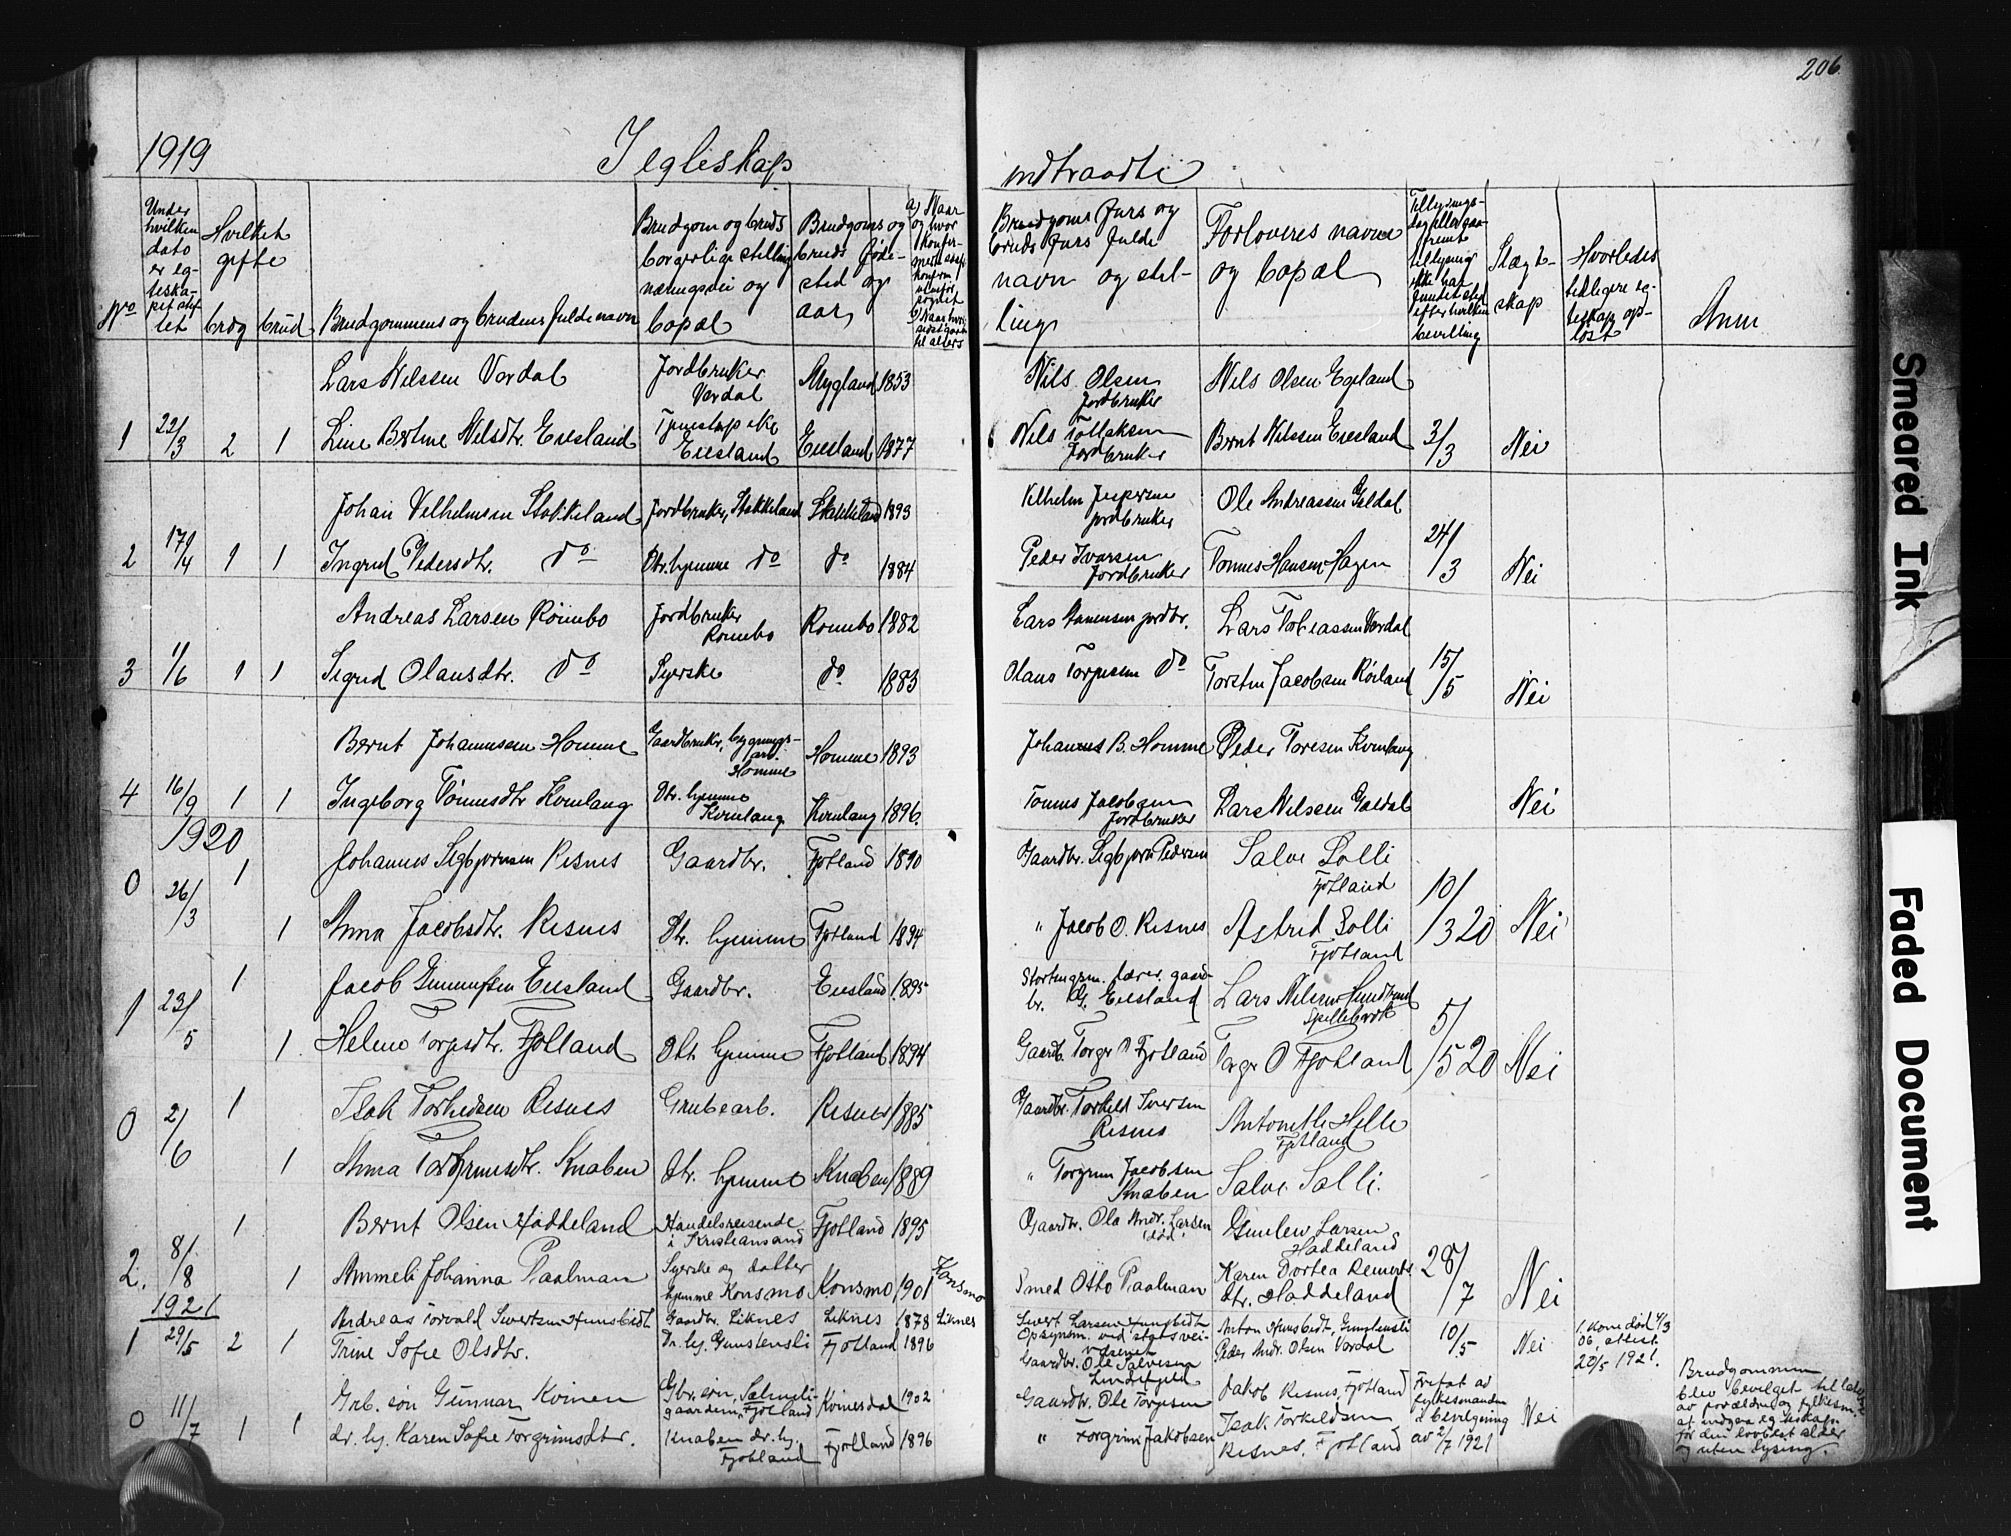 206
1919 I egteskap indtraadte
No
Under hvilken dato er egteskapet stiftet
Hvilket gifte
brdg brud
Brudgommens og brudens fulde navn
Brudgom og bruds borgerlige stilling næringsvei og bopæl
Brudgoms og bruds fødested og aar
Brudgoms fars og bruds fars fulde navn og stilling
Forloveres navne og bopæl
Slægtskap
Hvorledes tidligere egteskap opløst
Anm
Lars Nilssen Vordal Jordbruker Vordal Mygland 1853 Nils Olsen Jordbruker Nils Olsen Egeland
1 22/3 2 1 Line Bertine Nilsdtr. Eiesland Eiesland Eiesland 1877 Nils Jordbruker Bernt Nilssen Eiesland 3/3 Nei
Johan Vilhelmsen Stakkeland Jordbruker, Stakkeland Stakkeland 1893 Vilhelm Jespersen jordbruker Ole Andreassen Galdal
2 17/4 1 1 Ingrid Pedersdtr. do Dtr. hjemme do do 1884 Peder Ivarsen Jordbruker Tønnes Hansen Hagen 24/3 Nei
Andreas Larsen Rømbo Jordbruker Rømbo Rømbo 1882 Lars jordbr. Lars Tobiassen Vordal
3 1/6 1 1 Sigrid Olausdtr. do Syerske do 1883 Olaus Torgiusen do Torstin Jacobsen Røiland 15/5 Nei
Bernt Johannessen Homme Gaardbruker, bygningsarb. Homme Homme 1893 Johannes B. Homme Peder Toresen Kvinlaug
4 16/9 1 1 Ingeborg Tønnesdtr Kvinlaug Dtr. hjemme Kvinlaug Kvinlaug 1896. Tønnes Jacobsen Jordbruker Lars Nilssen Galdal Nei
1920
Johannes Sigbjørnsen Risnes Gaardbr. Fjotland 1890 Gaardbr. Sigbjørn Pedersen Salve Solli Fjotland
0 26/3 1 1 Anna Jacobsdtr. Risnes Dtr. hjemme Fjotland 1894 " Jacob O. Risnes Astrid Solli Fjotland 10/3 20 Nei
Jacob Gunnufsen Eiesland Gaardbr. Eiesland 1895 Stortingsm. lærer, gaardbr. G. Eiesland Lars
1 23/5 1 1 Helene Torgisdtr. Fjotland Dtr. hjemme Fjotland 1894 Gaardb. Torger Fjotland Torger O Fjotland 5/5 20 Nei
Isak Torkildsen Risnes Grubearb. Risnes 1885 Gaardbr. Torkild Iversen Risnes Antonette Helle Fjotland
0 2/6 1 1 Anna Torgrimsdtr. Knaben Dtr. hjemme Knaben 1889 " Torgrim Jacobsen Knaben Salve Solli.
Bernt Olsen Haddeland Handelsreisende i Kristiansand Fjotland 1895 Gaardbr. Ole Andr. Larsen (død) Gunlev Larsen Haddeland
2. 8/8 1 1 Ammeli Johanna Paalman Syerske og datter hjemme Konsmo Konsmo 1901 Konsmo Smed Otto Paalman Karen Dortea Reinertsdtr. Haddeland 28/7 Nei
1921
Andreas Torvald Sivertsen Hunsbedt Gaardbr. Liknes Liknes 1878 Liknes Sivert Larsen Hunsbedt Opsynsm. ved statsveivæsenet Anton Hunsbedt,
1 29/5 2 1 Trine Sofie Olsdtr. Dr. hj. Gunstensli Fjotland 1896 Gaardbr. Ole Salvesen Peder Andr. Olsen Vordal 10/5 Nei 1. kone død 4/3 06, attest 20/5 1921.
Grb. søn Gunnar Kvinen Gbr. søn, Fjotland Kvinesdal 1902 Gaardbr. Ole Torgisen Jakob Risnes, Fjotland
0 11/7 1 1 dr. hj. Karen Sofie Torgrimsdtr. Knaben dr. hj. Fjotland Fjotland 1896 " Torgrim Jakobsen Isak Torkildsen Risnes, Fjotland
Fritat av fylkesmanden i bevilgning av 2/7 1921 Nei
Brudgommen blev bevilget tilladelse av forældre og fylkesm. at indgaa egteskap før den lovbest. alder og uten lysing.
Smeared Ink
Faded Document